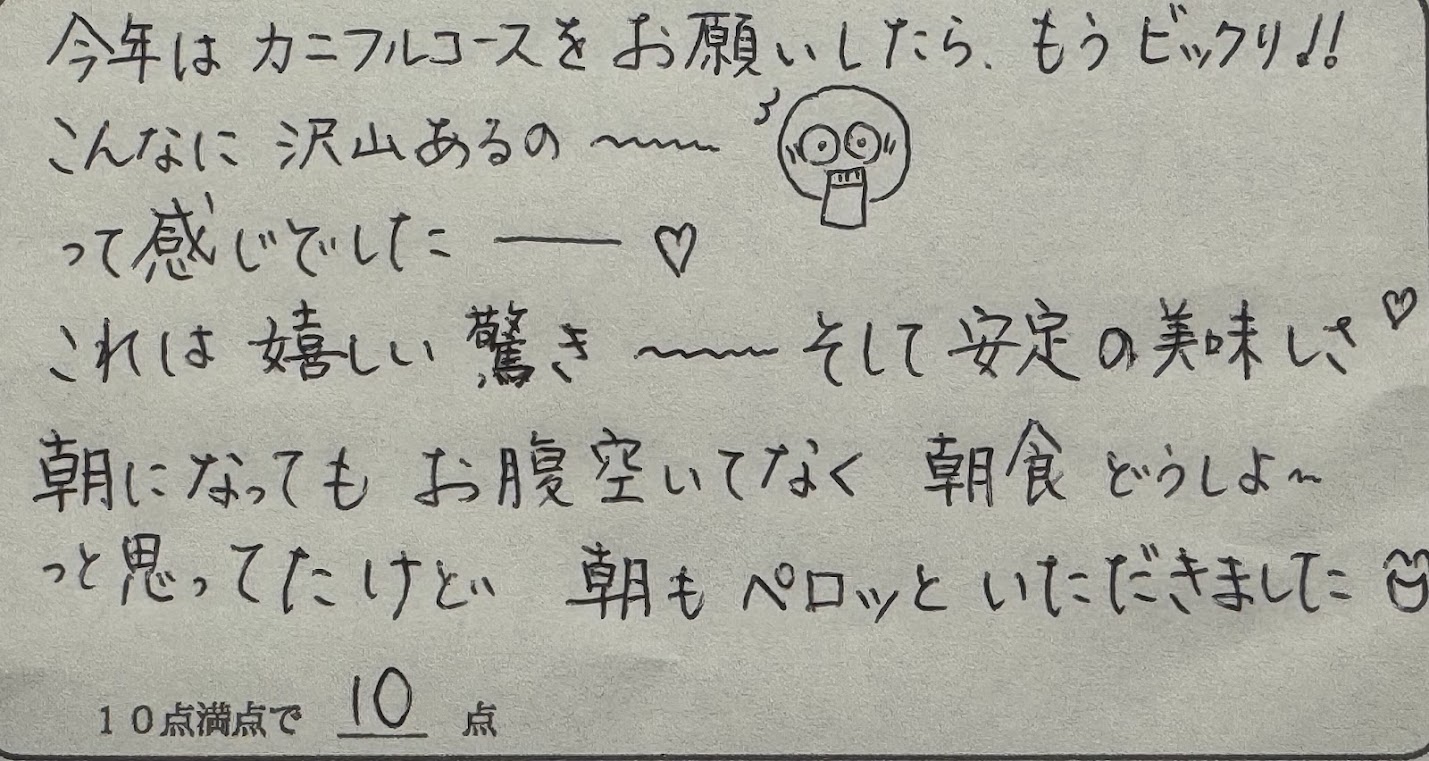 今年は カニフルコースを お願いしたら、もう ビックリ!!
こんなに 沢山あるの 〜〜〜
って感じでした ―― ♡
これは 嬉しい 驚き 〜〜〜 そして 安定の美味しさ♡
朝になっても お腹空いてなく 朝食 どうしよ〜
っと思ってたけどい 朝も ペロッと いただきました
10点満点で 10 点